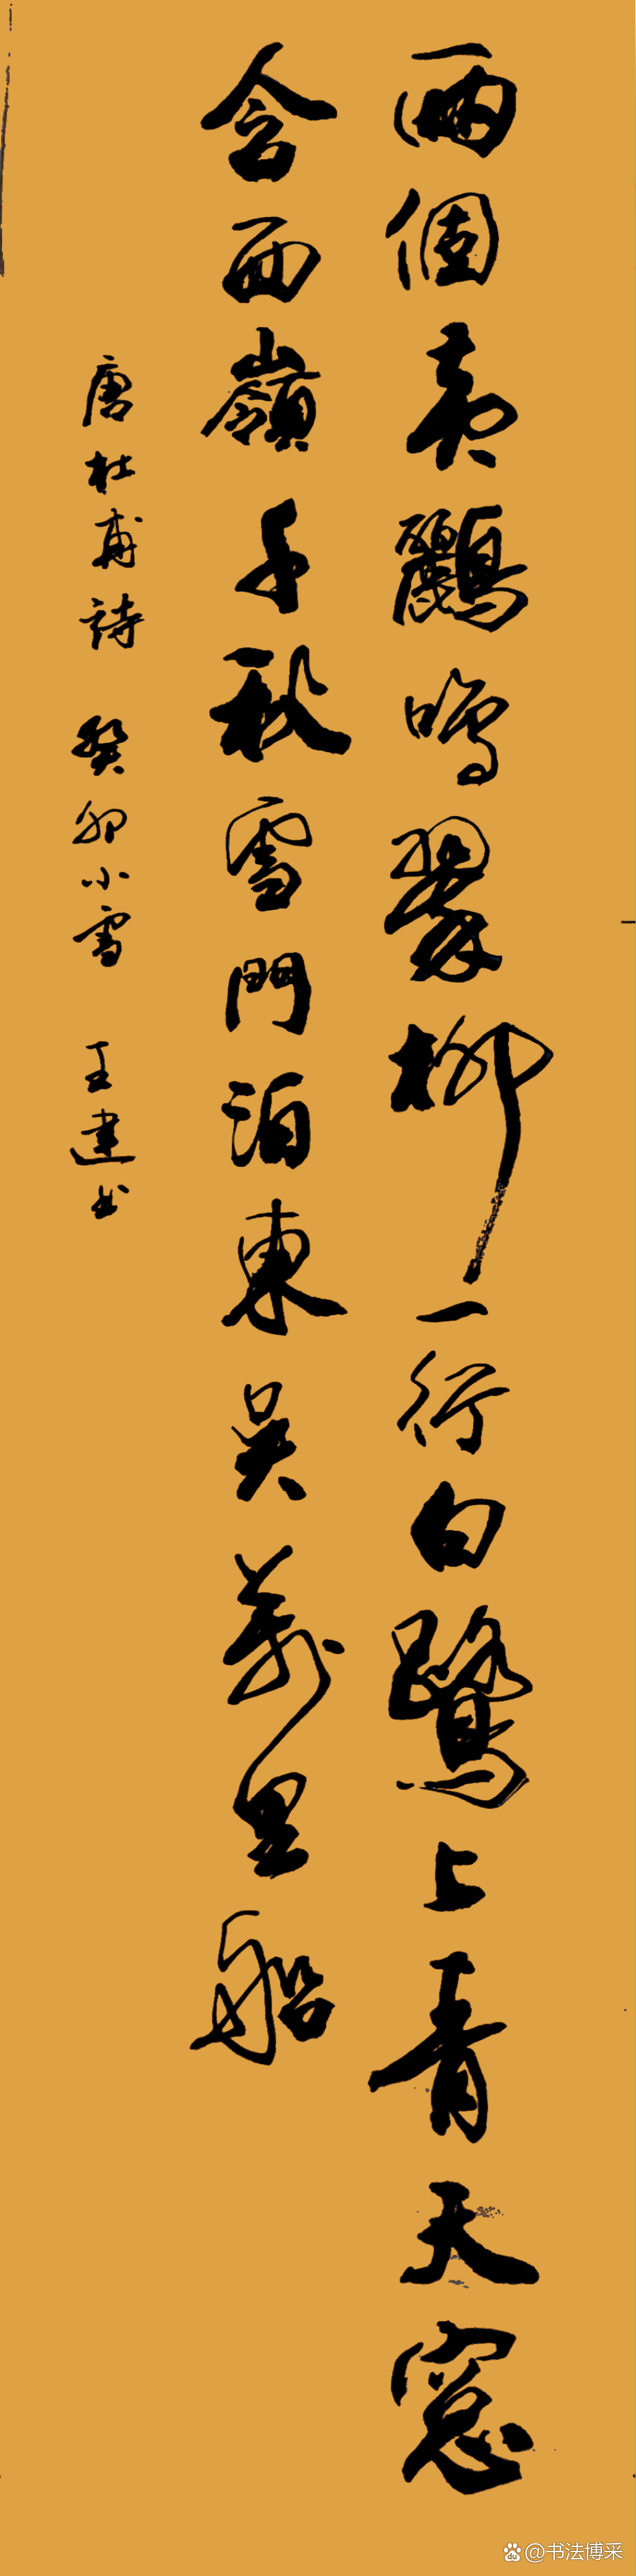 兩個黃鸝鳴翠柳一行白鷺上青天窓
含西嶺千秋雪門泊東吳萬里船
唐杜甫詩 癸卯小雪 王建书
@书法博采